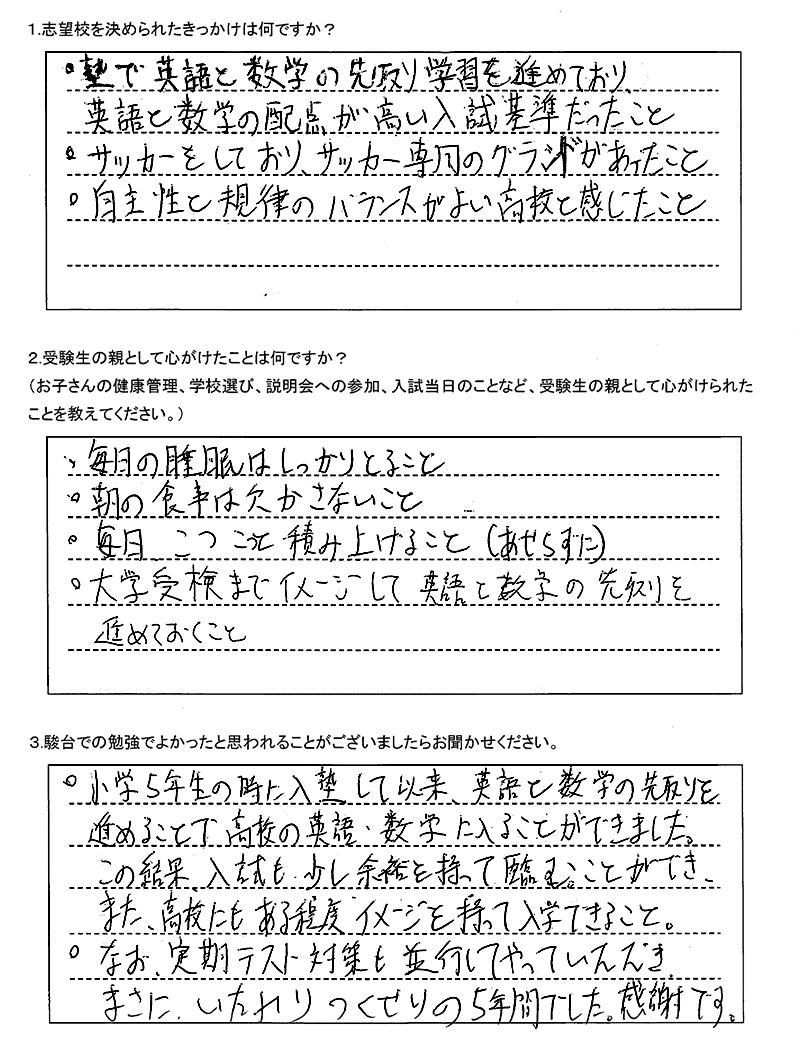 1.志望校を決められたきっかけは何ですか？
○塾で英語と数学の先取り学習を進めており、
英語と数学の配点が高い入試基準だったこと
○サッカーをしており、サッカー専用のグランドがあったこと
○自主性と規律のバランスがよい高校と感じたこと
2.受験生の親として心がけたことは何ですか？
（お子さんの健康管理、学校選び、説明会への参加、入試当日のことなど、受験生の親として心がけられた
ことを教えてください。）
○毎日の睡眠はしっかりとること
○朝の食事は欠かさないこと
○毎日、こつこつと積み上げること（あせらずに）
○大学受検までイメージして英語と数学の先取りを
進めておくこと
3.駿台での勉強でよかったと思われることがございましたらお聞かせください。
○小学5年生の時に入塾して以来、英語と数学の先取りを
進めることで高校の英語・数学に入ることができました。
この結果、入試も少し余裕を持って臨むことができ、
また、高校にもある程度イメージを持って入学できること。
○なお、定期テスト対策も並行してやっていただき、
まさに、いたれりつくせりの5年間でした。感謝です。